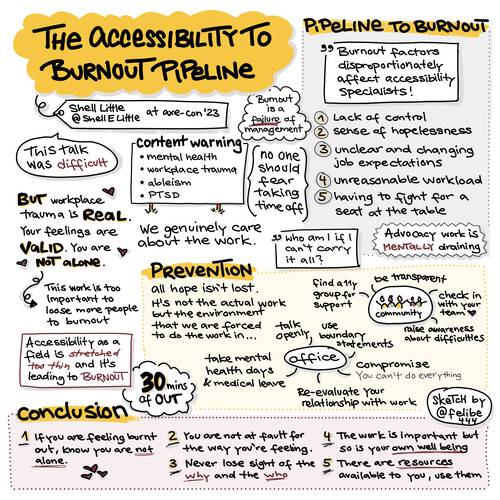 THE ACCESSIBILITY TO
BURNOUT PIPELINE
Shell Little
@ShellELittle
at axe-con '23
Burnout
is a
failure of
management
This talk
was difficult
content warning
• mental health
• workplace trauma
• ableism
• PTSD
no one
should
fear
taking
time off
BUT workplace
trauma is REAL.
Your feelings are
VALID. You are
NOT ALONE.
We genuinely care
about the work.
"who am I if I
can't carry
it all?
This work is too
important to
loose more people
to burnout
Accessibility as a
field is stretched
too thin and it's
leading to BURNOUT
PIPELINE TO BURNOUT
" Burnout factors
disproportionately
affect accessibility
specialists!
1 Lack of control
2 sense of hopelessness
3 unclear and changing
job expectations
4 unreasonable workload
5 having to fight for a
seat at the table
Advocacy work is
MENTALLY draining
PREVENTION
all hope isn't lost.
It's not the actual work
but the environment
that we are forced
to do the work in...
find a11y
group for
support
be transparent
community
check in
with your
team
raise awareness
about difficulties
talk
openly
use
boundary
statements
office
take mental
health days
& medical leave
compromise
You can't do everything
Re-evaluate your
relationship with work
30 mins
of OUT
Sketch by
@felibe
444
conclusion
1 If you are feeling burnt
out, know you are not
alone.
2 You are not at fault for
the way you're feeling.
3 Never lose sight of the
why and the who
4 The work is important but
so is your own well being
5 There are resources
available to you, use them